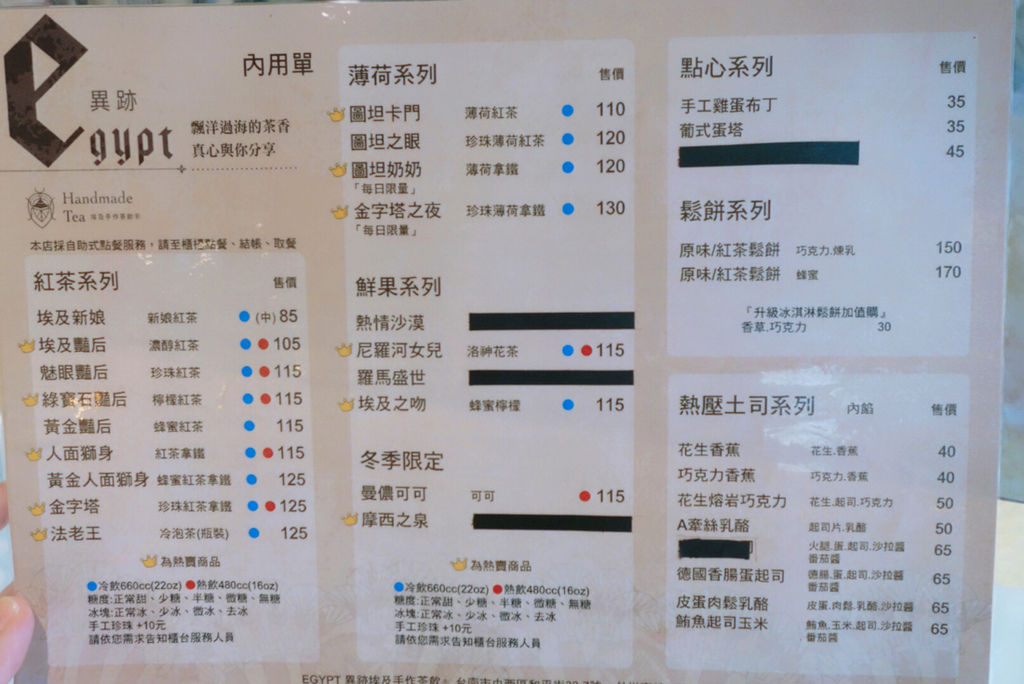 egypt
異跡
內用單
飄洋過海的茶香
真心與你分享
Handmade
Tea 埃及手作茶飲®
本店採自助式點餐服務,請至櫃檯點餐、結帳、取餐
紅茶系列 售價
埃及新娘 新娘紅茶 (中) 85
埃及豔后 濃醇紅茶 105
魅眼豔后 珍珠紅茶 115
綠寶石豔后 檸檬紅茶 115
黃金豔后 蜂蜜紅茶 115
人面獅身 紅茶拿鐵 115
黃金人面獅身 蜂蜜紅茶拿鐵 125
金字塔 珍珠紅茶拿鐵 125
法老王 冷泡茶(瓶裝) 125
為熱賣商品
冷飲660cc(22oz) 熱飲480cc(16oz)
糖度:正常甜、少糖、半糖、微糖、無糖
冰塊:正常冰、少冰、微冰、去冰
手工珍珠 +10元
請依您需求告知櫃台服務人員
薄荷系列 售價
圖坦卡門 薄荷紅茶 110
圖坦之眼 珍珠薄荷紅茶 120
圖坦奶奶 薄荷拿鐵 120
「每日限量」
金字塔之夜 珍珠薄荷拿鐵 130
「每日限量」
鮮果系列
熱情沙漠
尼羅河女兒 洛神花茶 115
羅馬盛世
埃及之吻 蜂蜜檸檬 115
冬季限定
曼儂可可 可可 115
摩西之泉
為熱賣商品
冷飲660cc(22oz) 熱飲480cc(16oz)
糖度:正常甜、少糖、半糖、微糖、無糖
冰塊:正常冰、少冰、微冰、去冰
手工珍珠 +10元
請依您需求告知櫃台服務人員
點心系列 售價
手工雞蛋布丁 35
葡式蛋塔 35
45
鬆餅系列
原味/紅茶鬆餅 巧克力.煉乳 150
原味/紅茶鬆餅 蜂蜜 170
『升級冰淇淋鬆餅加值購』
香草.巧克力 30
熱壓土司系列 內餡 售價
花生香蕉 花生.香蕉 40
巧克力香蕉 巧克力.香蕉 40
花生熔岩巧克力 花生.起司.巧克力 50
A牽絲乳酪 起司片.乳酪 50
火腿.蛋.起司.沙拉醬 65
番茄醬
德國香腸蛋起司 德腸.蛋.起司.沙拉醬 65
番茄醬
皮蛋肉鬆乳酪 皮蛋.肉鬆.乳酪.沙拉醬 65
鮪魚起司玉米 鮪魚.玉米.起司.沙拉醬 65
番茄醬
EGYPT 異跡埃及手作茶飲